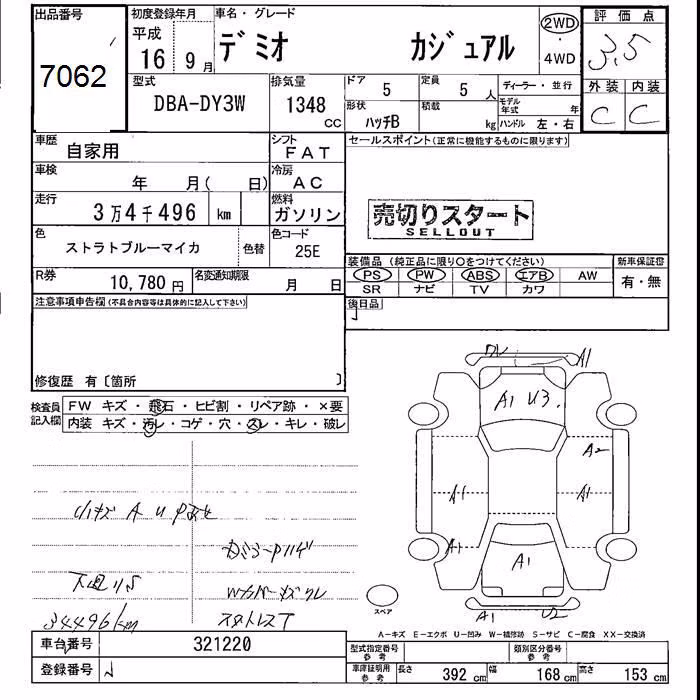 出品番号
7062
初度登録年月
平成
16 9 月
車名・グレード
デミオ カジュアル
2WD
・
4WD
評価点
3.5
外装 内装
C C
型式
DBA-DY3W
排気量
1348
CC
ドア
5
定員
5 人
形状
ハッチB
積載
kg
ディーラー・並行
モデル年式 年
ハンドル 左・右
車歴
自家用
シフト
FAT
車検
年 月( 日)
冷房
AC
走行
3万4千496 km
燃料
ガソリン
色
ストラトブルーマイカ
色替
色コード
25E
R券
10,780 円
名変通知期限
月 日
セールスポイント(正常に機能するものに限ります)
売切りスタート
SELLOUT
装備品(純正品に限り○をつけてください)
新車保証書
PS PW ABS エアB AW
SR ナビ TV カワ
有・無
後日品
注意事項申告欄(不具合内容等は具体的に記入して下さい)
修復歴 有〔箇所 〕
検査員
記入欄
FW キズ・飛石・ヒビ割・リペア跡・×要
内装 キズ・汚レ・コゲ・穴・スレ・キレ・破レ
小キズ A U
下廻りS
34496km
スタットレスT
A1
A1 U3.
A2
A1
A1
A1
A1
A1 U2
スペア
A-キズ E-エクボ U-凹み W-補修跡 S-サビ C-腐食 XX-交換済
車台番号
321220
登録番号
型式指定番号
参考
類別区分番号
参考
車庫証明用
参考
長さ 392 cm 幅 168 cm 高さ 153 cm